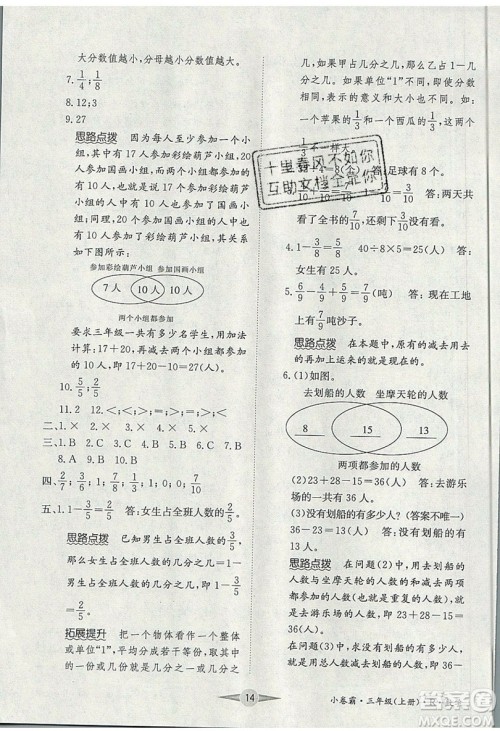 大分数值越小，分母越小分数值越大。
7. 1/4；1/8
8. 12；3
9. 27
思路点拨 因为每人至少参加一个小
组，所以参加彩绘葫芦小组的人中有
的人也参加了国画小组，也就是这
17人中有10人也参加了国画小
组；同理，20人中也有10人参加了
彩绘葫芦小组，其关系
如下图所示：
参加彩绘葫芦小组 参加国画小组
7人 10人 10人
两个小组都参加
要求三年级一共有多少名学生，用加法
计算：17＋20，再减去两个小组都参加
的人数，即17＋20－10＝27(人)。
10. 2/5；5/5
11. 2 12. ＜；＜；＞；＝；＞；＝
二、1. × 2. × 3. √ 4. × 5. ×
三、1. B 2. C 3. B 4. C 5. B
四、2/7；9/9；1；3/5；1/3；0；7/10
五、1. 1－3/5＝2/5 答：女生占全班人数的2/5。
思路点拨 已知男生占全班人数的3/5，
那么女生占全班人数的几分之几，用
单位“1”减去男生占全班人数的几分
之几，即1－3/5。
拓展提升 把一个物体看作一个整体
或单位“1”，平均分成若干份，取其中
的一份或几份就是几分之一或几分
之几，如果甲占几分之几，那么乙占
几分之几。如果单位“1”不同，那么几
分之几表示的意义和大小也不同，如
一个苹果的1/3和一个西瓜的1/3，虽然都
1/3 不一样大
十里春风不如你
互助文档
答：足球有8个。
答：两天共
看了全书的
4. 1－3/8＝5/8 40÷8×5＝25(人) 答：
女生有25人。
5. 6/9－1/9＋2/9＝7/9(吨) 答：现在工地
上有7/9吨沙子。
思路点拨 在本题中，原有的减去用
去的再加上运来的就是现在的。
6. (1)如图。
去划船的人数 坐摩天轮的人数
8 15 13
两项都参加的人数
(2)23＋28－15＝36(人) 答：去游乐
场的一共有36人。
(3)没有划船的有多少人？(答案不唯一)
36－23＝13(人)
答：没有划船的有13人。
思路点拨 在问题(2)中，用去划船的
人数与坐摩天轮的人数和减去两项都
参加的人数(也就是重复的人数)，就
是去游乐场的人数，即23＋28－15＝
36(人)。
问题(3)中，求没有划船的有多少人，
就是用总人数减去划船的人数，即36
－23＝13(人)。
14
小卷霸·三年级(上册)·